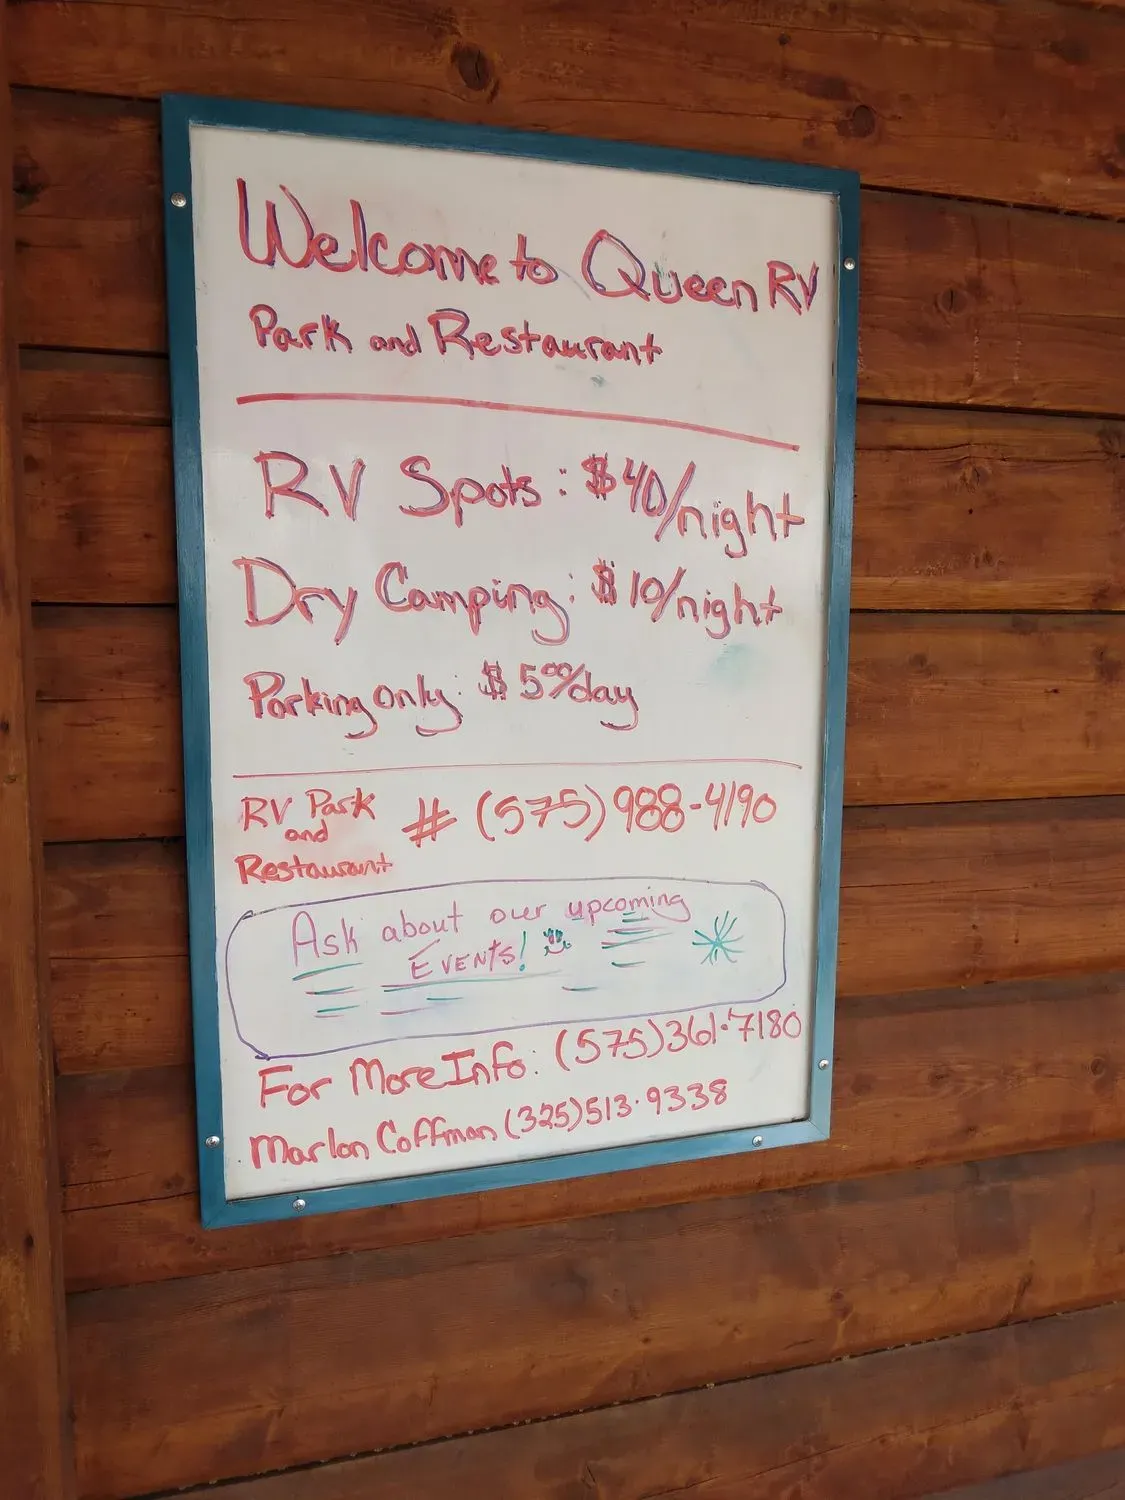 Welcome to Queen RV
Park and Restaurant
RV Spots: $40/night
Dry Camping: $10/night
Parking only: $5⁰⁰/day
RV Park
and
Restaurant
# (575) 988-4190
Ask about our upcoming
EVENTS!
For More Info: (575)361·7180
Marlon Coffman (325)513·9338